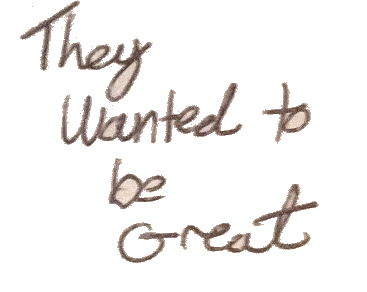 They
Wanted to
be
Great